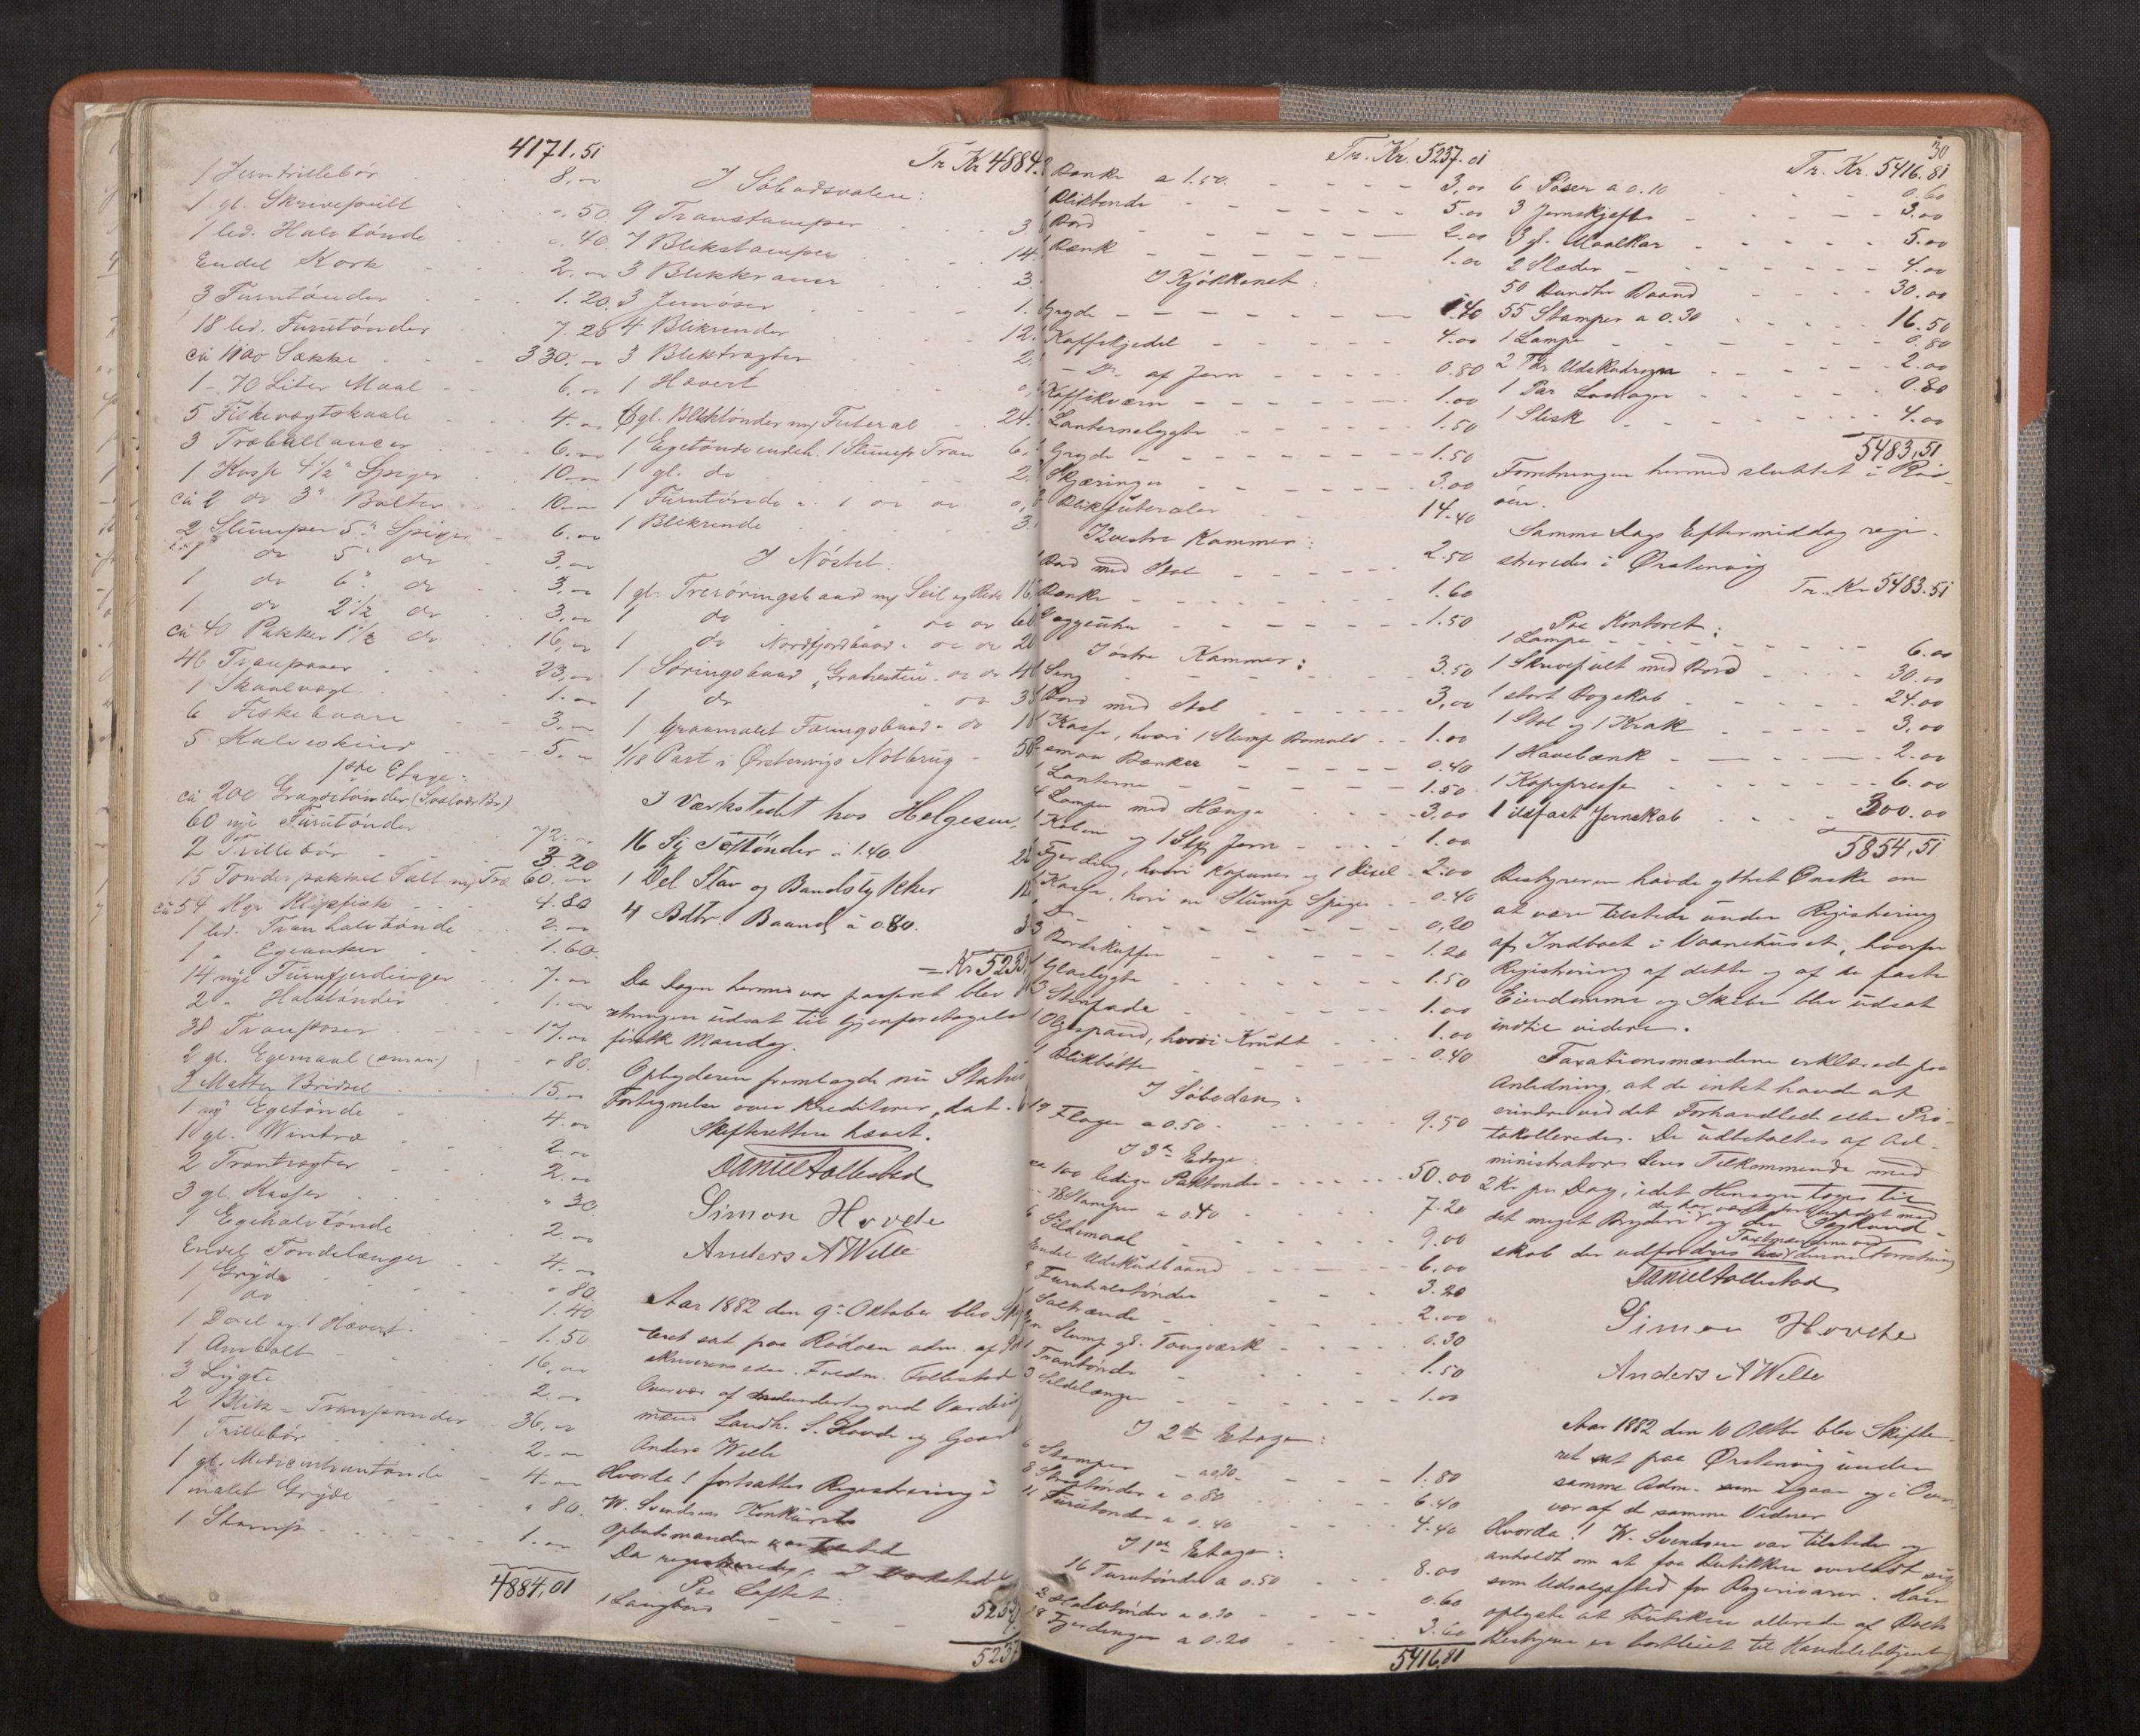 4171.51
1 Jerntrillebør 8.00
1 gl. Skrivepult 0.50
1 led. Halvtønde 0.40
Endel Kork 2.00
3 Furutønder 1.20
18 led. Furutønder 7.20
ca 1100 Sække 330.00
1 - 70 Liter Maal 6.00
5 Fiskevægtskaale 4.00
3 Træballancer 6.00
1 Kasse 4 1/2" Spiger 10.00
ca 2 do 3" Bolter 10.00
2 Slumper 5" Spiger 6.00
1 do 5" do 3.00
1 do 6" do 3.00
1 do 2 1/2 do 3.00
ca 40 Pakker 1 1/2 do 16.00
46 Tranposer 23.00
1 Skaalvægt 1.00
6 Fiskebaare 3.00
5 Kalveskind 5.00
1ste Etage:
ca 200
60 nye Furutønder 72.00
2 Trillebør 3.20
15 Tønder pakket Salt m/ Træ 60.00
ca 54 Kgr Klipfisk 4.80
1 led. Tran halvtønde 2.00
1 " Egeanker 1.60
14 nye Furufjerdinger 7.00
2 " Halvtønder 1.00
38 Tranposer 17.00
2 gl. Egemaal 0.80
3 Matter Bridsel 15.00
1 ny Egetønde 4.00
1 gl. Vintræ 2.00
2 Trantragter 2.00
3 gl. Kasser " 30
1 Egehalvtønde 2.00
Endel Tøndelænger 4.00
1 Gryde 0.80
1 do 1.40
1 Dexel og 1 Havert 1.50
1 Ambolt 16.00
3 Lygte 2.00
2 Blik-Tranpander 36.00
1 Trillebør 2.00
1 gl. Medicintrantønde 4.00
1 malet Gryde " 80
1 Stamp 1.00
4884,01
Tr. Kr 4884.
I Søbodsvalen:
9 Transtamper 3.
7 Blikstamper 14.
3 Blikkraner 3.
3 Jernøser 1.
4 Blikrender 12.
3 Bliktragter 2.
1 Hævert
6 gl. Bliktønder m/ Futeral 24.
1 Egetønde indeh. 1 Slump Tran 6.
1 gl. do 2.
1 Furutønde
1 Blikrende 3.
I Nøstet:
1 gl. Treroringsbaad m/ Seil og Rede
1 do do do
1 do Nordfjordbaad do do
1 Søringsbaad do do
1 do do
1 Graamalet Færingsbaad do
1/18 Part i Ørstenvigs Notbrug
I Værkstedet hos Helgesen.
16 Stk Tøttønder à 1.40
1 Del Stav og Baandstykker
4 Bdtr. Baand à 0.80
= Kr 523
Da Dagen hermed var passeret blev
retningen udsat til Gjenforetagelse
førstk Mandag.
Opbyderen fremlagde nu Status
Fortegnelse over Kreditorer, dat.
Skifteretten hævet.
Daniel Aollestad
Simon Hovde
Anders A Welle
Aar 1882 den 9de Oktober blev
teret sat paa Rødøen adm. af
skriverens edsv. Fuldm. Follestad
Overvær af undertegnede Vurderings
mænd Landh. S. Hovde og Gaar
Anders Welle
Hvorda! fortsattes Registrering i
W. Svendsens Konkursbo
Opbudsmanden var tilstede
Da registreredes,
Paa Loftet:
1 Langbord
523
Tr. Kr. 5237.01
Bænke a 1.50 3,00
Bliktønde 5.00
Bord 2.00
Bænk 1.00
I Kjøkkenet:
Gryde 1.40
Kaffekjedel 4.00
- Do af Jern 0.80
Kaffekværn 1.00
Lanternelygte 1.50
Gryde 1.50
Skjæringer 3.00
Blikfuteraler 14.40
I Vestre Kammer:
Bord med Stol 2.50
Bænke 1.60
Væggeuhr 1.50
I østre Kammer:
Seng 3.50
Bord med Stol 3,00
Kasse, hvori 1 Slump Bomuld 1.00
Bænker 0.40
Lanterne 1.50
Lampe med Hænge 3,00
Kaben og 1 Stk Jern 1.00
Fjerding, hvori Kapuner og 1 Dexel 2.00
Kasse, hvori en Slump Spiger 0.40
Do 0,20
Bordskuffer 1.20
Glaslygte 1.50
Stenfade 1.00
Oljespand, hvori Krudt 1.00
Blikbøtte 0.40
I Søboden:
19 Flager a 0.50 9.50
I 3de Etage:
ca 100 ledige Paktønder 50.00
18 Stamper a 0.40 7.20
6 Sildemaal 9.00
Endel Udskudbaand 6.00
8 Furuhalvtønder 3.20
Saltrænde 2.00
En Slump gl. Tougværk 0.30
1 Trantønde 1.50
3 Sildelænger 1.00
I 2den Etage:
6 Stamper a 0.30 1.80
8 Tøttønder a 0.80 6.40
11 Furutønder a 0.40 4.40
I 1ste Etage:
16 Furutønder a 0.50 8.00
2 Halvtønder a 0.30 0.60
18 Fjerdinger a 0.20 3.60
5416,81
30
Tr. Kr. 5416.81
6 Poser a 0.10 0.60
3 Jernskjefter 3.00
3 gl. Maalkar 5.00
2 Slæder 4.00
50 Bundter Baand 30.00
55 Stamper a 0.30 16.50
1 Lampe 0.80
2 Par Udskudrogn 2.00
1 Par Lastager 0.80
1 Slisk 4.00
5483,51
Forretningen hermed sluttet i Rød-
øen.
Samme Dags Eftermiddag regi-
streredes i Ørstenvig
Tr. Kr 5483.51
Paa Kontoret:
1 Lampe 6.00
1 Skrivepult med Bord 30.00
1 stort Bogskab 24.00
1 Stol og 1 Krak 3,00
1 Havebænk 2.00
1 Kopipresse 6.00
1 ildfast Jernskab 300.00
5854,51
Bestyreren havde yttret Ønske om
at være tilstede under Registrering
af Indboet i Vaanehuset, hvorfor
Registrering af dette og af de faste
Eiendomme og Skibe blev udsat
indtil videre.
Taxationsmændene erklærede paa
Anledning, at de intet havde at
erindre ved det Forhandlede eller Pro-
tokollerede. De udbetaltes af Ad-
ministrator deres Tilkommende med
2 Kr pr Dag, idet Hensyn toges til
det meget Bryderi der har været forbundet med og den Sagkund-
skab der udfordres hos Taxtmændene ved denne Forretning
Daniel Aollestad
Simon Hovde
Anders A Welle
Aar 1882 den 10 Oktbr blev Skifte-
ret sat paa Ørstenvig under
samme Adm. som igaar og i Over-
vær af de samme Vidner
Hvorda! W. Svendsen var tilstede og
anholdt om at faa Butikken overladt sig
som Udsalgssted for Bagerivarer. Han
oplyste at Butiken allerede af Boets
Bestyrer er bortleiet til Handelsbetjent